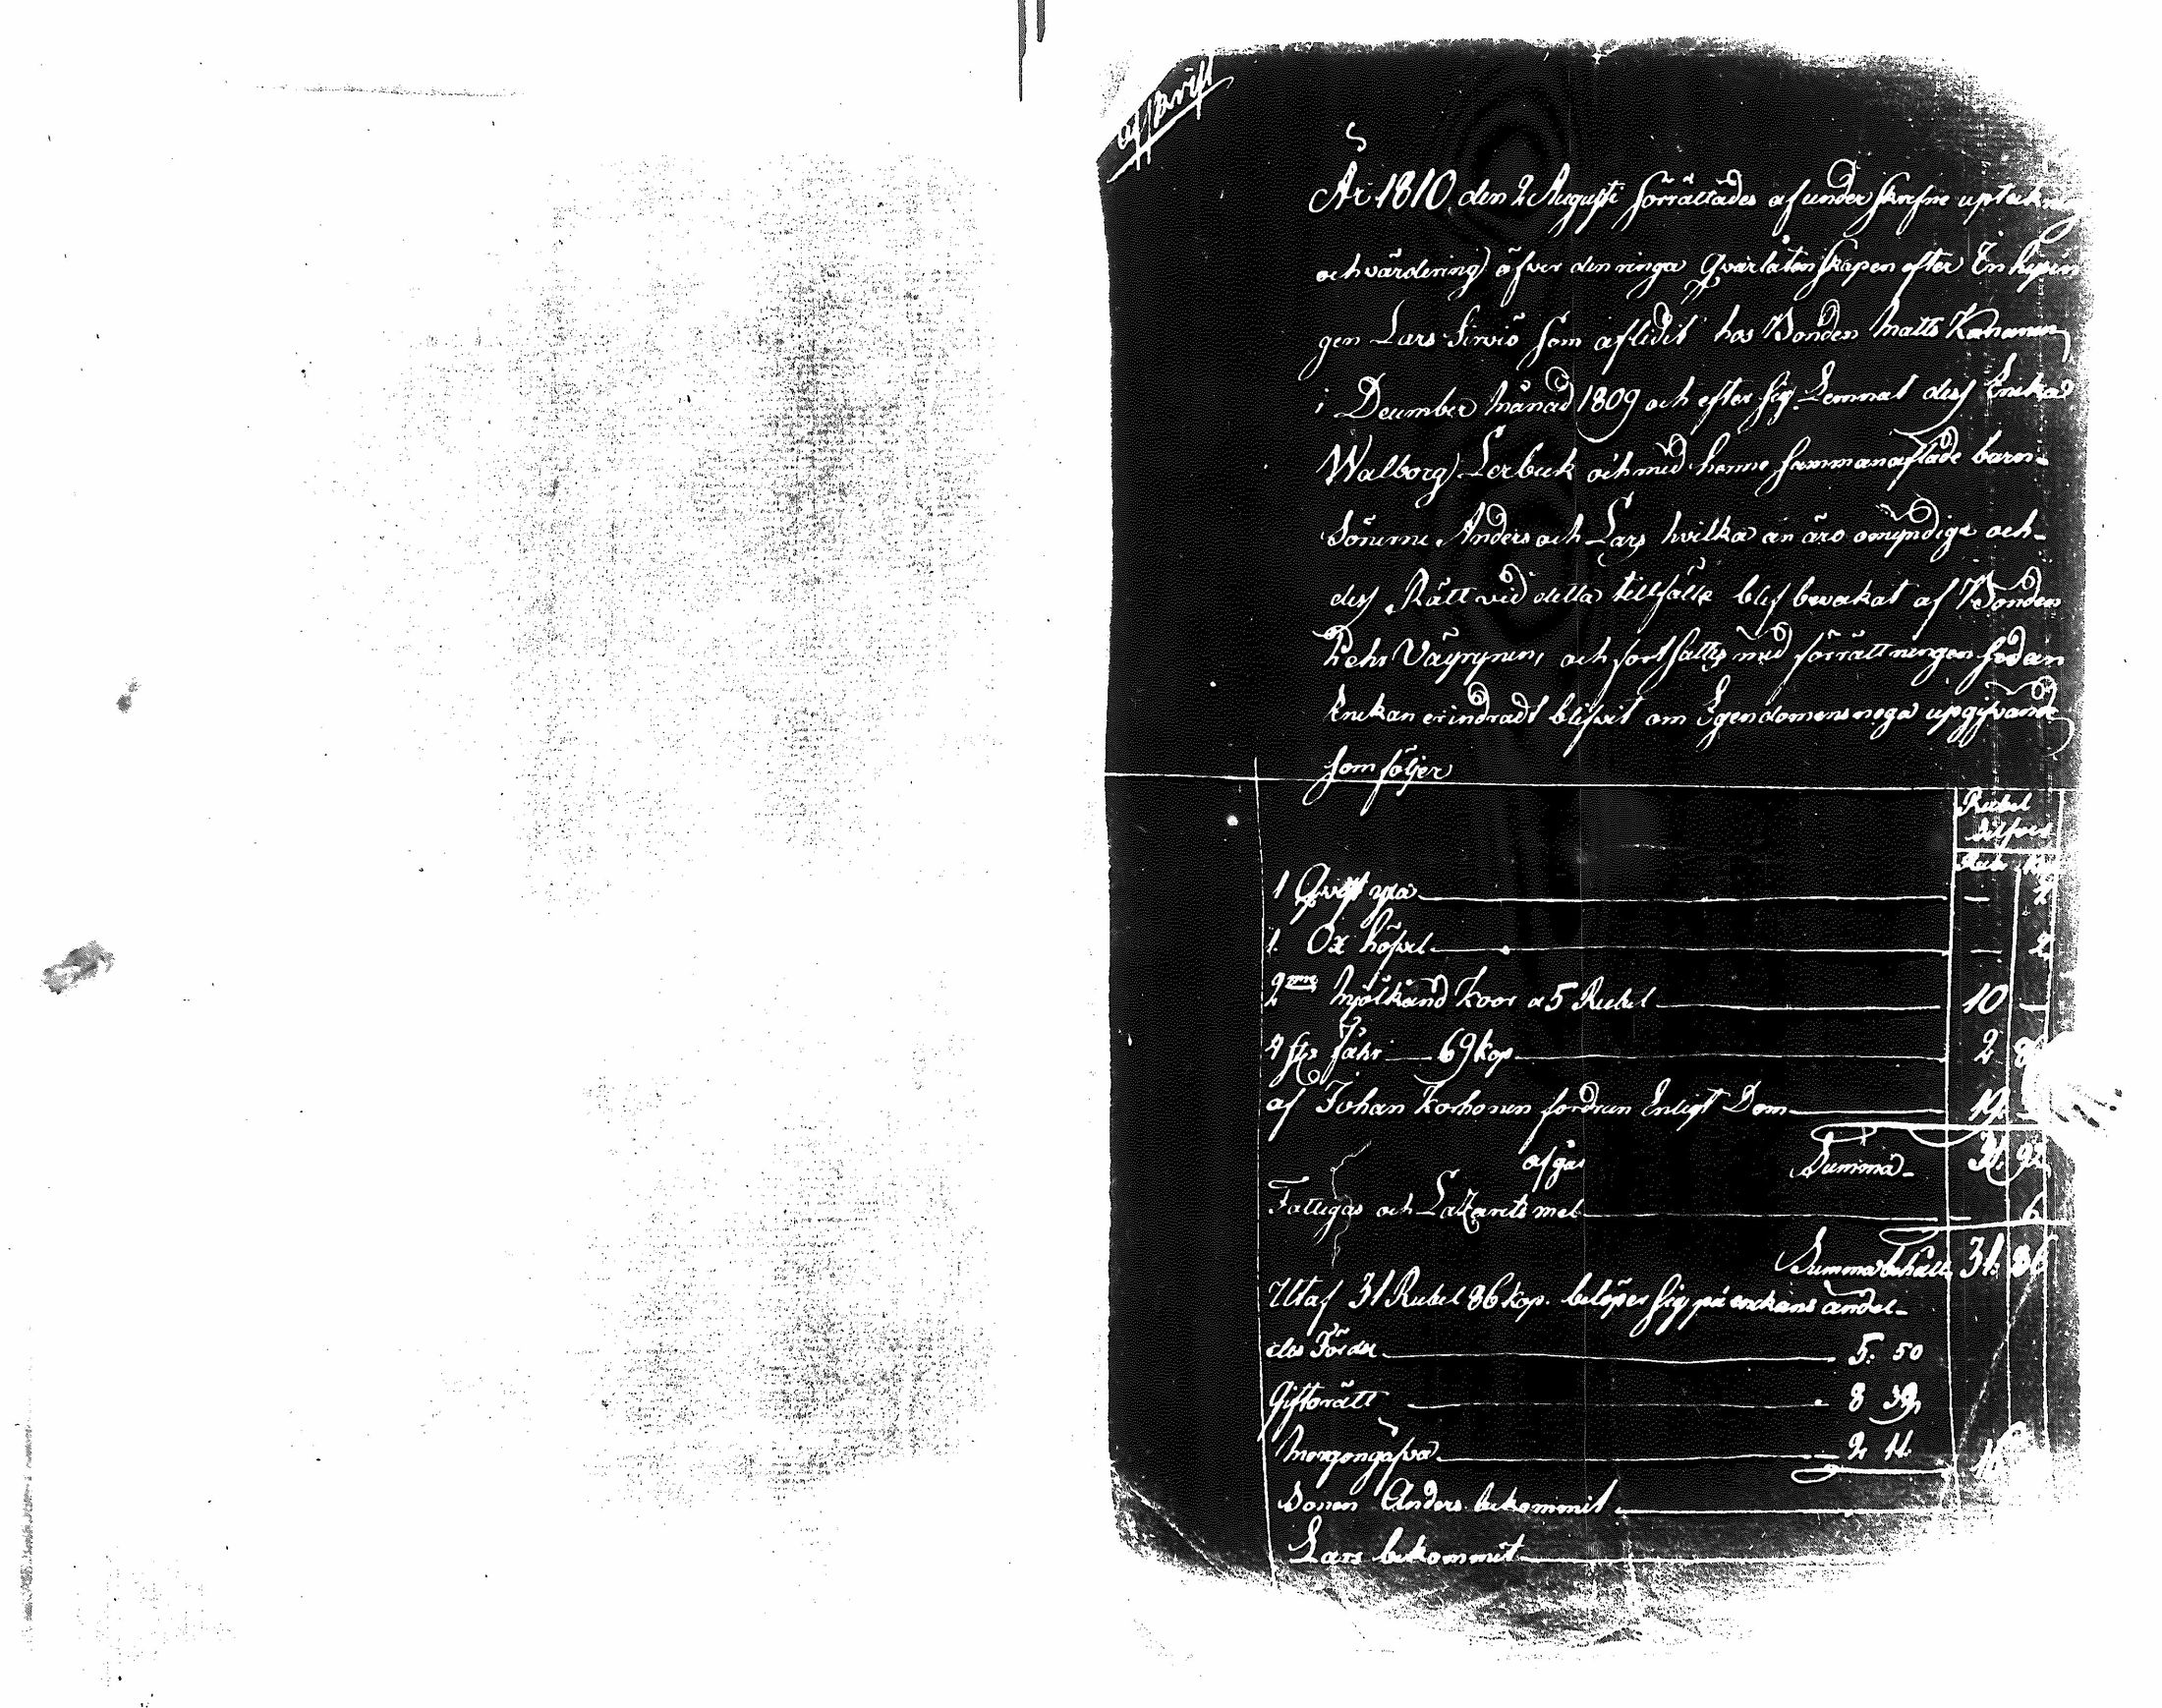 Afskrift
År 1810 den 2 Augusti förrättades af underskrefne uptekning
och värdering öfver den ringa Qvarlåtenskapen efter Inhysin
gen Lars Sirviö som aflidit hos Bonden Matts Kananen
i December Månad 1809 och efter sig Lemnat dess Enka
Walborg Lerbuk och med henne sammanaflade barn
Sönerne Anders och Lars hvilka än äro omyndige och
dess Rätt vid detta tillfälle blef bevakat af Bonden
Pehr Väyrynen, och fortsattes med förrättningen sedan
Enkan erindradt blifvit om Egendomens noga upgifvande
som följer
Rubel
Silfver
Rub Kop
1 Qvist yxa — 2
1. Ox höfvel — 2
2ne Mjölkand Koor a 5 Rubel 10 —
4 st Fåhr 69 kop 2
af Johan Korhonen fordran Enligt Dom 19. —
afgår Summa 31. 92
Fattigas och Lazarets mel 6
Summa behåll. 31. 86
Utaf 31 Rubel 86 kop. belöper sig på enckans andel
des Fördel 5. 50
Giftorätt 8 39
Morgongåfva 2 11.
Sonen Anders bekommit
Lars bekommit